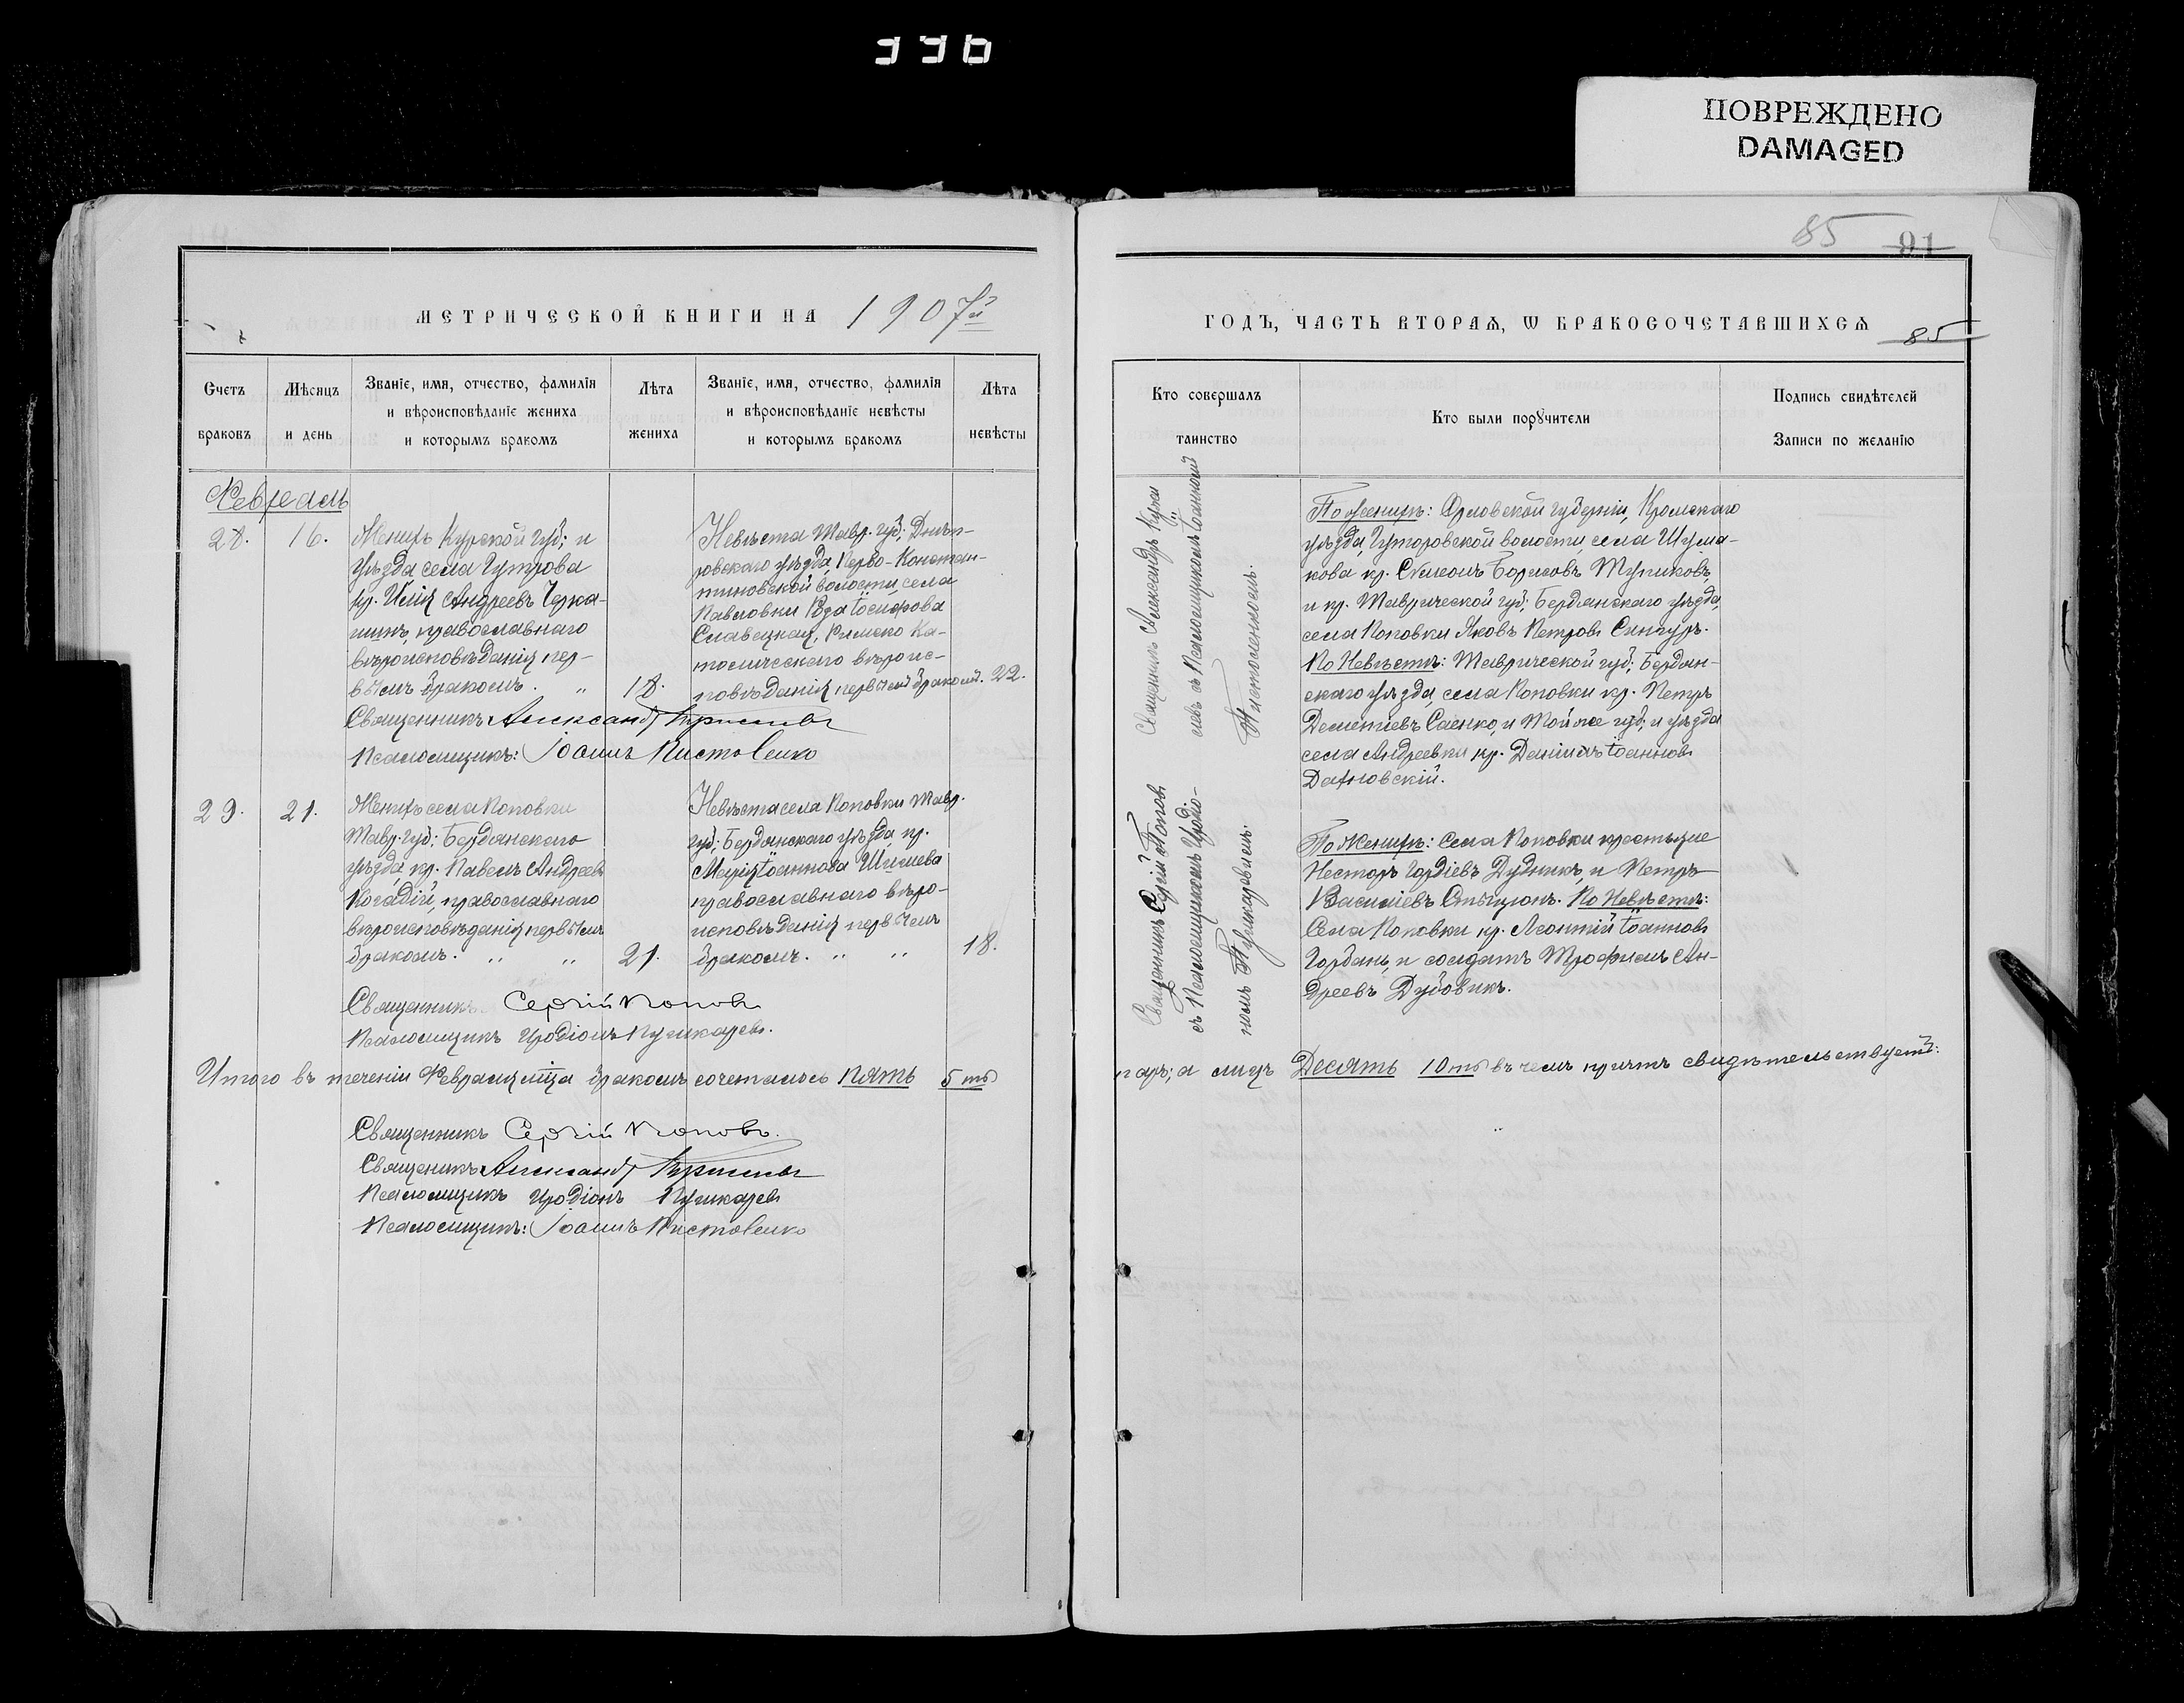 336
ПОВРЕЖДЕНО
DAMAGED
МЕТРИЧЕСКОЙ КНИГИ НА 1907й
Счетъ браковъ
Мѣсяцъ и день
Званіе, имя, отчество, фамилія и вѣроисповѣданіе жениха и которымъ бракомъ
Лѣта жениха
Званіе, имя, отчество, фамилія и вѣроисповѣданіе невѣсты и которымъ бракомъ
Лѣта невѣсты
Февраль
28.
16.
Женихъ Курской губ; и
уѣзда села Гутрова
кр. Илія Андреевъ Черка-
шинъ, православнаго
вѣроисповѣданія пер-
вымъ бракомъ. „
18.
Невѣста Тавр. губ; Днѣп-
ровскаго уѣзда, Перво-Констан-
тиновской волости, села
Павловки Роза Іосифова
Славецкая, Римско Ка-
толическаго вѣроис-
повѣданія первымъ бракомъ.
22.
Священникъ Александръ
Псаломщикъ: Іоаннъ Пистоленко
29.
21.
Женихъ села Поповки
Тавр. губ; Бердянскаго
уѣзда, кр. Павелъ Андреевъ
православнаго
вѣроисповѣданія первымъ
бракомъ. „ „
21.
Невѣста села Поповки Тавр.
губ; Бердянскаго уѣзда, кр.
Марія Іоаннова Шишева
православнаго вѣро-
исповѣданія первымъ
бракомъ. „ „
18.
Священникъ Сергій Поповъ
Псаломщикъ Иродіонъ Пушкаревъ.
Итого въ теченіи Февраля мца бракомъ сочеталось пять 5ть
Священникъ Сергій Поповъ.
Священникъ Александръ
Псаломщикъ Иродіонъ Пушкаревъ
Псаломщикъ: Іоаннъ Пистоленко
85
91
ГОДЪ, ЧАСТЬ ВТОРАЯ, Ѡ БРАКОСОЧЕТАВШИХСЯ
85
Кто совершалъ таинство
Кто были порꙋчители
Подпись свидѣтелей Записи по желанію
Священникъ Александръ
съ Псаломщикомъ Іоанномъ
Пистоленкомъ.
По женихѣ: Орловской губерніи, Кромскаго
уѣзда, Гуторовской волости, села Шума-
кова кр. Симеонъ Борисовъ Тупиковъ,
и кр. Таврической губ; Бердянскаго уѣзда,
села Поповки Яковъ Петровъ Сингуръ.
По Невѣстѣ: Таврической губ; Бердян-
скаго уѣзда, села Поповки кр. Петръ
Дементіевъ Саенко, и той же губ; и уѣзда
села Андреевки кр. Даніилъ Іоанновъ
Дахновскій.
Священникъ Сергій Поповъ
съ Псаломщикомъ Иродіо-
номъ Пушкаревымъ.
По Женихѣ: Села Поповки крестьяне
Несторъ Гордіевъ Дудникъ, и Петръ
Василіевъ. По Невѣстѣ:
Села Поповки кр. Леонтій Іоанновъ
Горбань, и солдатъ Трофимъ Ан-
дреевъ Дубовикъ.
паръ; а лицъ Десять 10ть въ чемъ причтъ свидѣтельствуетъ: